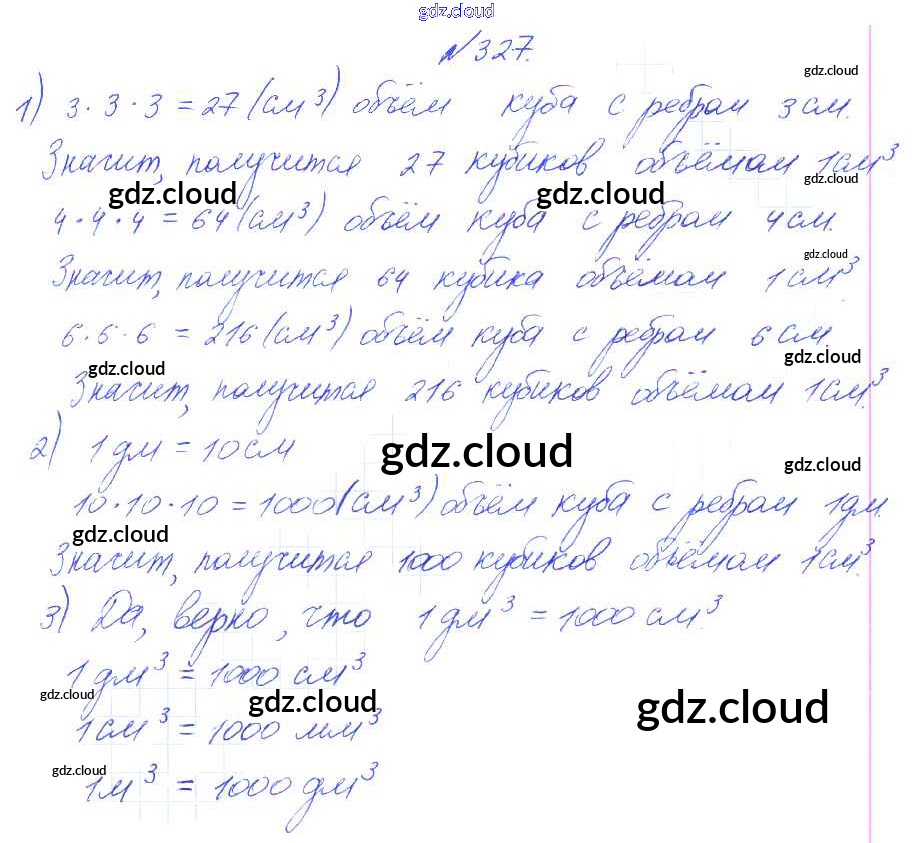 gdz.cloud
№327.
gdz.cloud
1) 3·3·3 = 27 (см³) объём куба с ребром 3 см.
Значит, получится 27 кубиков объёмом 1см³
gdz.cloud gdz.cloud
4·4·4 = 64 (см³) объём куба с ребром 4 см.
gdz.cloud
Значит, получится 64 кубика объёмом 1 см³.
6·6·6 = 216 (см³) объём куба с ребром 6 см.
gdz.cloud gdz.cloud
Значит, получится 216 кубиков объёмом 1см³.
2) 1 дм = 10 см
gdz.cloud gdz.cloud
10·10·10 = 1000 (см³) объём куба с ребром 1дм.
gdz.cloud
Значит, получится 1000 кубиков объёмом 1см³.
3) Да, верно, что 1 дм³ = 1000 см³.
1 дм³ = 1000 см³
gdz.cloud gdz.cloud gdz.cloud
1 см³ = 1000 мм³
gdz.cloud
1м³ = 1000 дм³